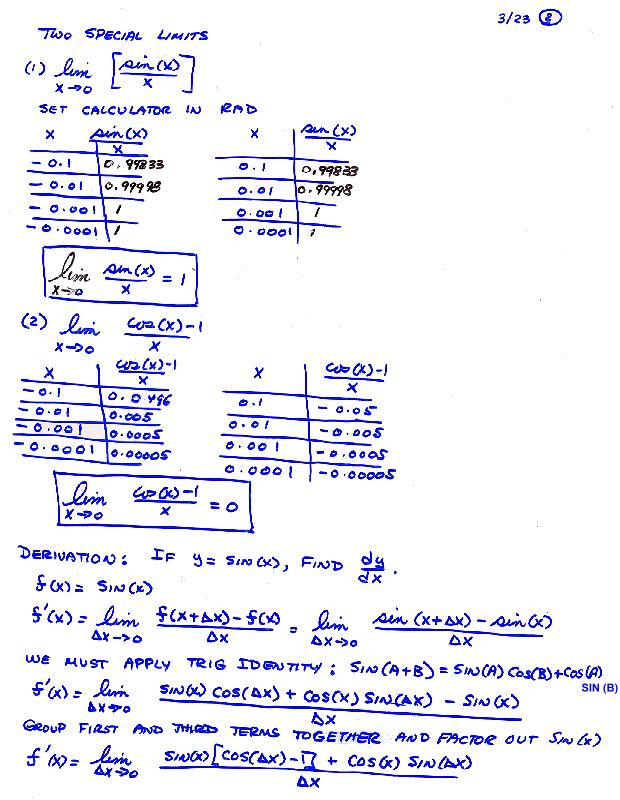 3/23 (2)
TWO SPECIAL LIMITS
(1) lim x→0 [sin(x)/x]
SET CALCULATOR IN RAD
x sin(x)/x x sin(x)/x
-0.1 0.99833 0.1 0.99833
-0.01 0.99998 0.01 0.99998
-0.001 1 0.001 1
-0.0001 1 0.0001 1
lim x→0 sin(x)/x = 1
(2) lim x→0 cos(x)-1/x
x cos(x)-1/x x cos(x)-1/x
-0.1 0.0496 0.1 -0.05
-0.01 0.005 0.01 -0.005
-0.001 0.0005 0.001 -0.0005
-0.0001 0.00005 0.0001 -0.00005
lim x→0 cos(x)-1/x = 0
DERIVATION: IF y = SIN(x), FIND dy/dx.
f(x) = SIN(x)
f'(x) = lim Δx→0 f(x+Δx)-f(x)/Δx = lim Δx→0 sin(x+Δx)-sin(x)/Δx
WE MUST APPLY TRIG IDENTITY: SIN(A+B) = SIN(A) COS(B) + COS(A)
SIN (B)
f'(x) = lim Δx→0 SIN(x) COS(Δx) + COS(x) SIN(Δx) - SIN(x)/Δx
GROUP FIRST AND THIRD TERMS TOGETHER AND FACTOR OUT SIN(x)
f'(x) = lim Δx→0 SIN(x)[COS(Δx)-1] + COS(x) SIN(Δx)/Δx